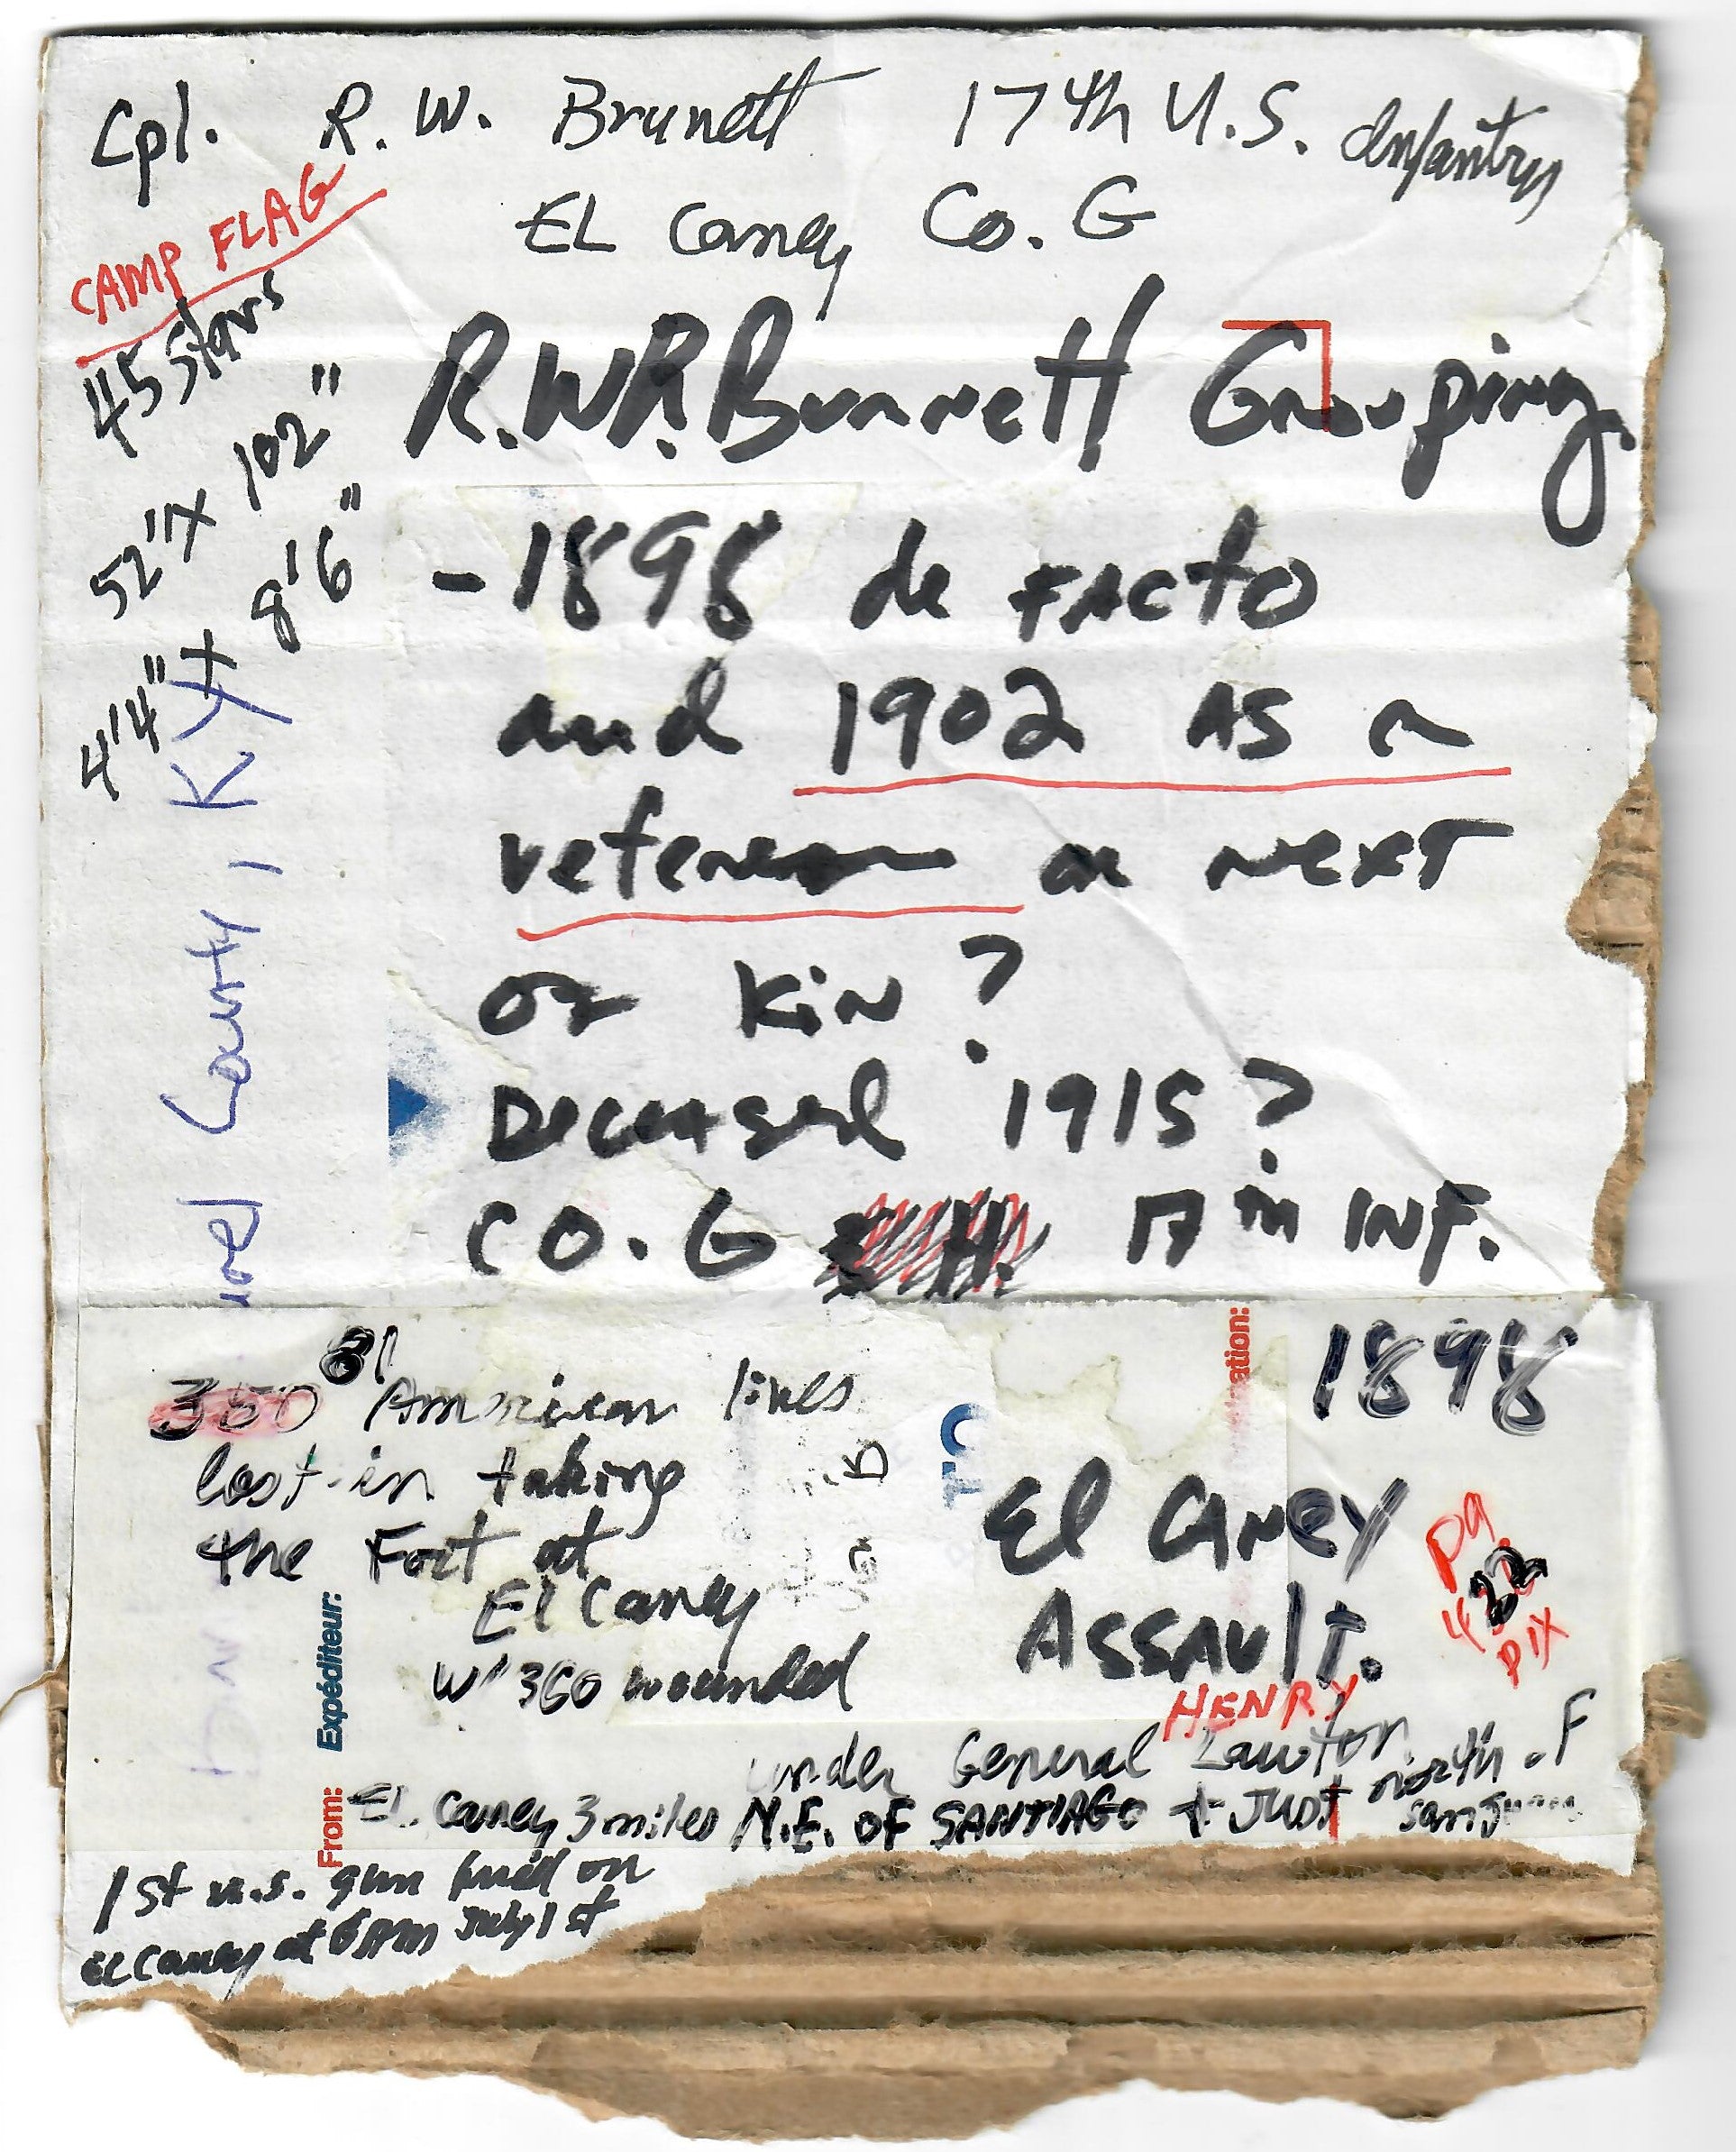 Cpl. R. W. Brunett 17th U.S. Infantry
EL Caney Co. G
CAMP FLAG
45 Stars
52" X 102"
4'4" X 8'6"
County, KY
R.W.P. Burnett Grouping
- 1898 de FACTO
and 1902 AS a
veteran or NEXT
OF KIN?
DECEASED 1915?
CO. G H. 17TH INF.
1898
El CANEY
ASSAULT.
pg
22
PIX
350 81 American lives
lost in taking
the Fort at
El Caney
W/ 360 wounded
HENRY
under General Lawton
EL Caney 3 miles N.E. OF SANTIAGO + JUST north of
San Juan
1st U.S. gun fired on
El Caney at 6 AM July 1st
Expéditeur:
From:
TO